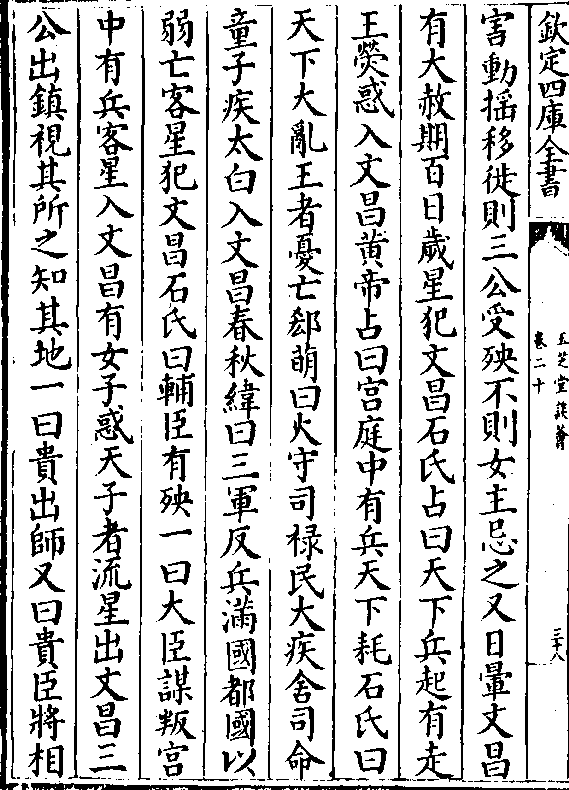 欽定四庫全書
玉芝堂談薈
卷二十
三十八
害動揺移徙則三公受殃不則女主忌之又日暈文昌
有大赦期百日歲星犯文昌石氏占曰天下兵起有走
王熒惑入文昌黄帝占曰宫庭中有兵天下耗石氏曰
天下大亂王者憂亡郄萌曰火守司禄民大疾舍司命
童子疾太白入文昌春秋緯曰三軍反兵滿國都國以
弱亡客星犯文昌石氏曰輔臣有殃一曰大臣謀叛宫
中有兵客星入文昌有女子惑天子者流星出文昌三
公出鎮視其所之知其地一曰貴出師又曰貴臣將相